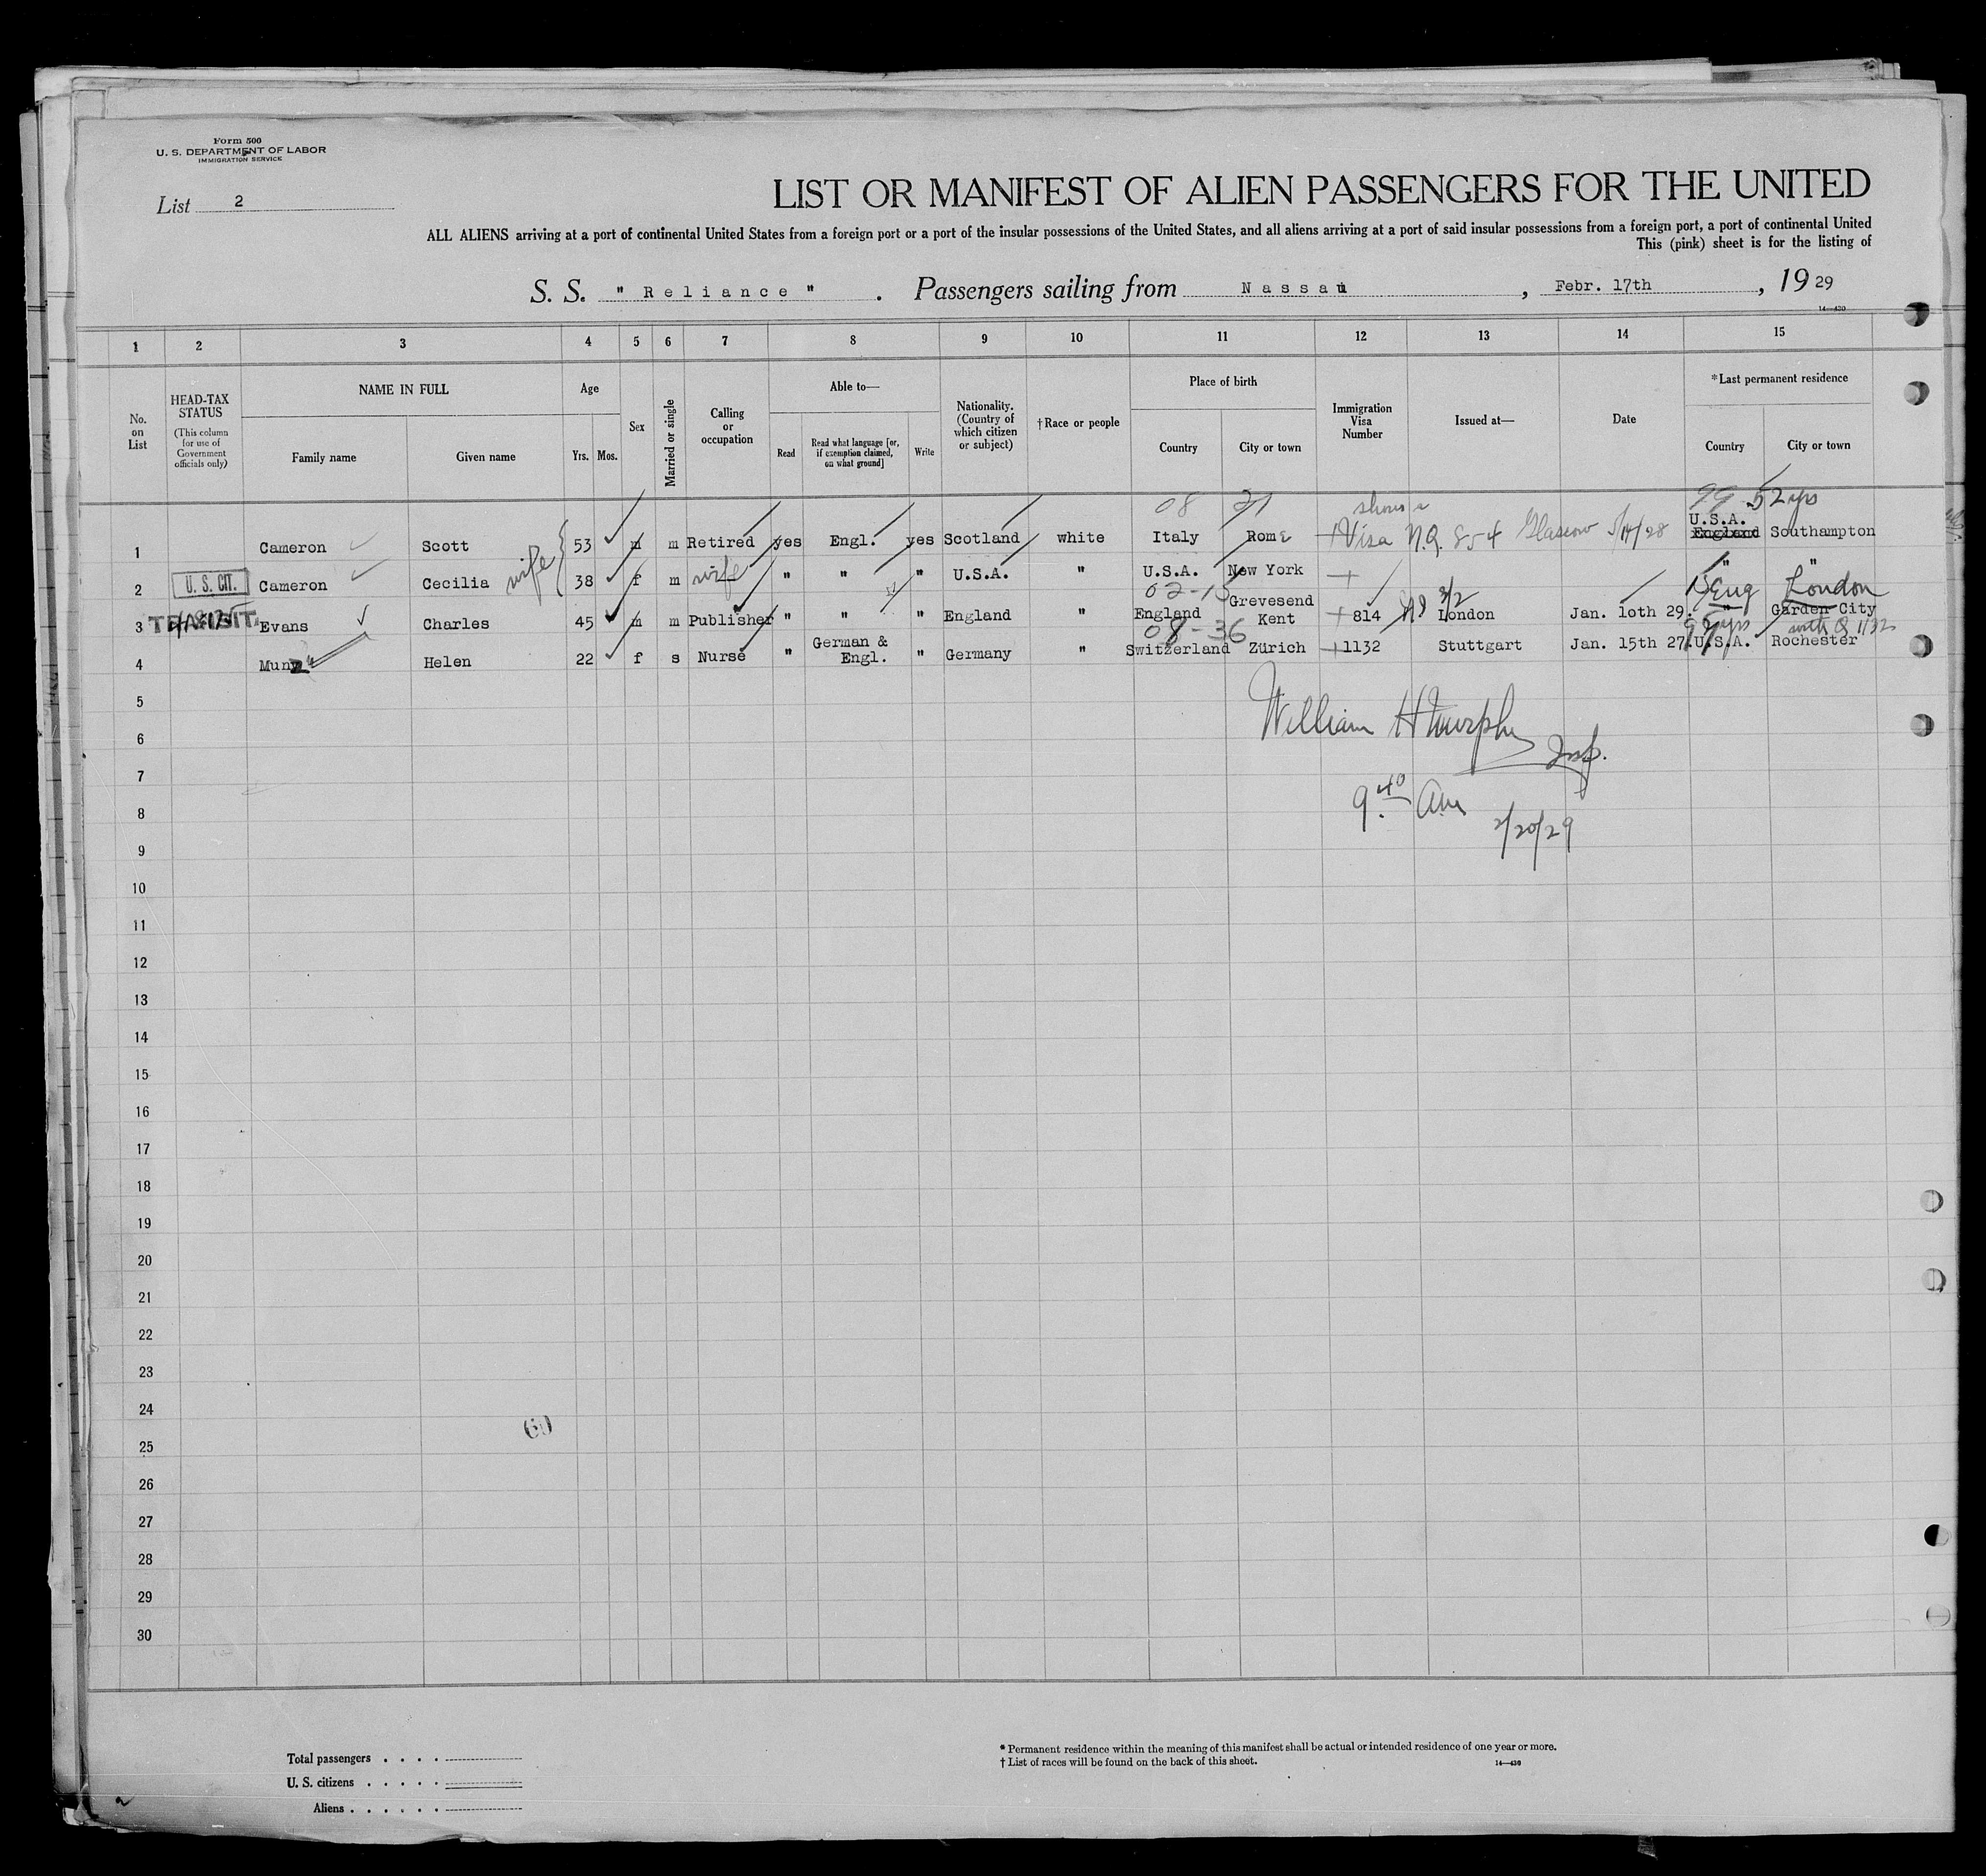 Form 500
U. S. DEPARTMENT OF LABOR
IMMIGRATION SERVICE
List 2
LIST OR MANIFEST OF ALIEN PASSENGERS FOR THE UNITED
ALL ALIENS arriving at a port of continental United States from a foreign port or a port of the insular possessions of the United States, and all aliens arriving at a port of said insular possessions from a foreign port, a port of continental United
This (pink) sheet is for the listing of
S. S. " Reliance " . Passengers sailing from Nassau , Febr. 17th , 19 29
14—430
1 2 3 4 5 6 7 8 9 10 11 12 13 14 15
No. on List
HEAD-TAX STATUS (This column for use of Government officials only)
NAME IN FULL
Family name Given name
Age
Yrs. Mos.
Sex
Married or single
Calling or occupation
Able to—
Read Read what language [or, if exemption claimed, on what ground] Write
Nationality. (Country of which citizen or subject)
†Race or people
Place of birth
Country City or town
Immigration Visa Number
Issued at—
Date
*Last permanent residence
Country City or town
08 21 shows 99 52 yrs
U.S.A.
1 Cameron Scott 53 m m Retired yes Engl. yes Scotland white Italy Rome Visa N.Q. 854 Glasgow 5/14/28 England Southampton
wife
2 U. S. CIT. Cameron Cecilia 38 f m wife " " " U.S.A. " U.S.A. New York " "
02-15 Eng London
3 TRANSIT Evans Charles 45 m m Publisher " " " England " England Grevesend Kent 814 London Jan. 1oth 29. " Garden City
08-36 yrs with Q 1132
4 Munz Helen 22 f s Nurse " German & Engl. " Germany " Switzerland Zürich 1132 Stuttgart Jan. 15th 27. U.S.A. Rochester
5
William H Murphy
Insp.
6
7
9 40 Am
2/20/29
8
9
10
11
12
13
14
15
16
17
18
19
20
21
22
23
24
60
25
26
27
28
29
30
Total passengers . . . .
U. S. citizens . . . . .
Aliens . . . . . .
* Permanent residence within the meaning of this manifest shall be actual or intended residence of one year or more.
† List of races will be found on the back of this sheet.
14—430